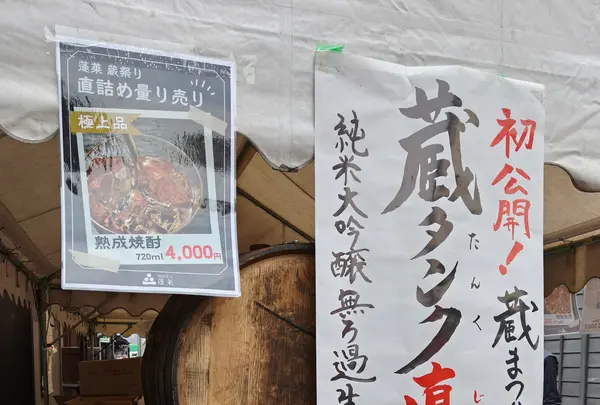 蓬莱 蔵祭り
直詰め量り売り
極上品
熟成焼酎
720ml 4,000円
蓬莱
初公開！
蔵まつ
蔵タンク直
たんくじ
純米大吟醸無ろ過生